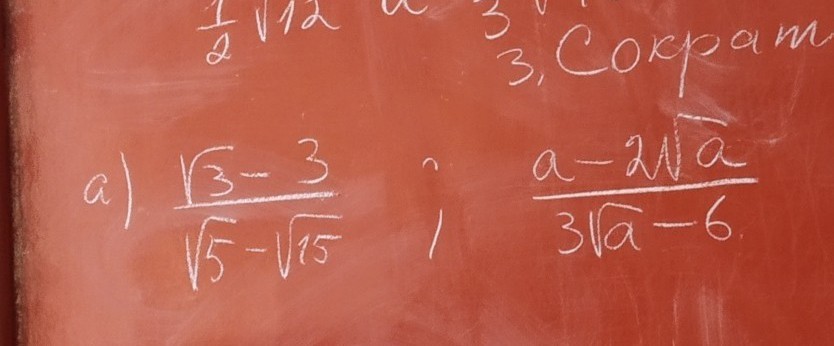 1/2 √12 и 3√
3. Сократ
а) (√3 - 3)/(√5 - √15) ; (a - 2√a)/(3√a - 6)